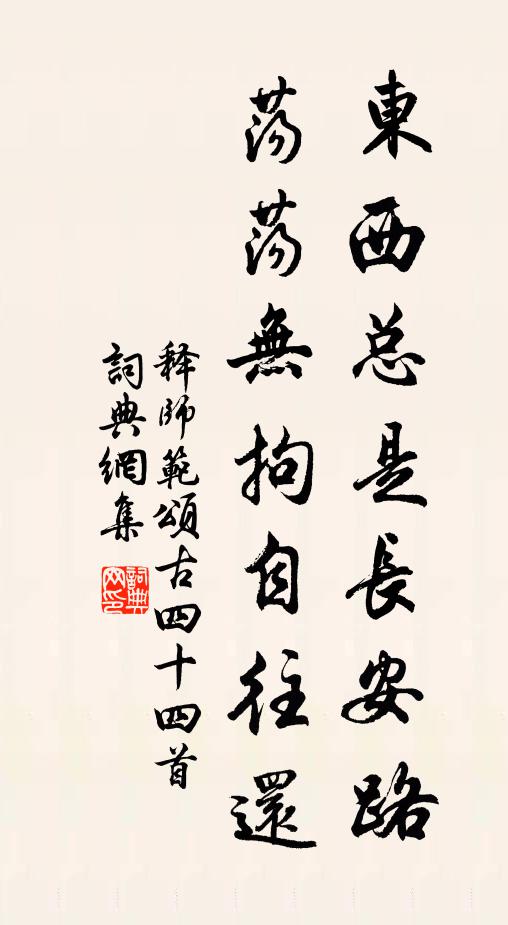 東西总是長安路
荡荡無拘自往還
释師範頌古四十四首
詞典網集
詞典網印